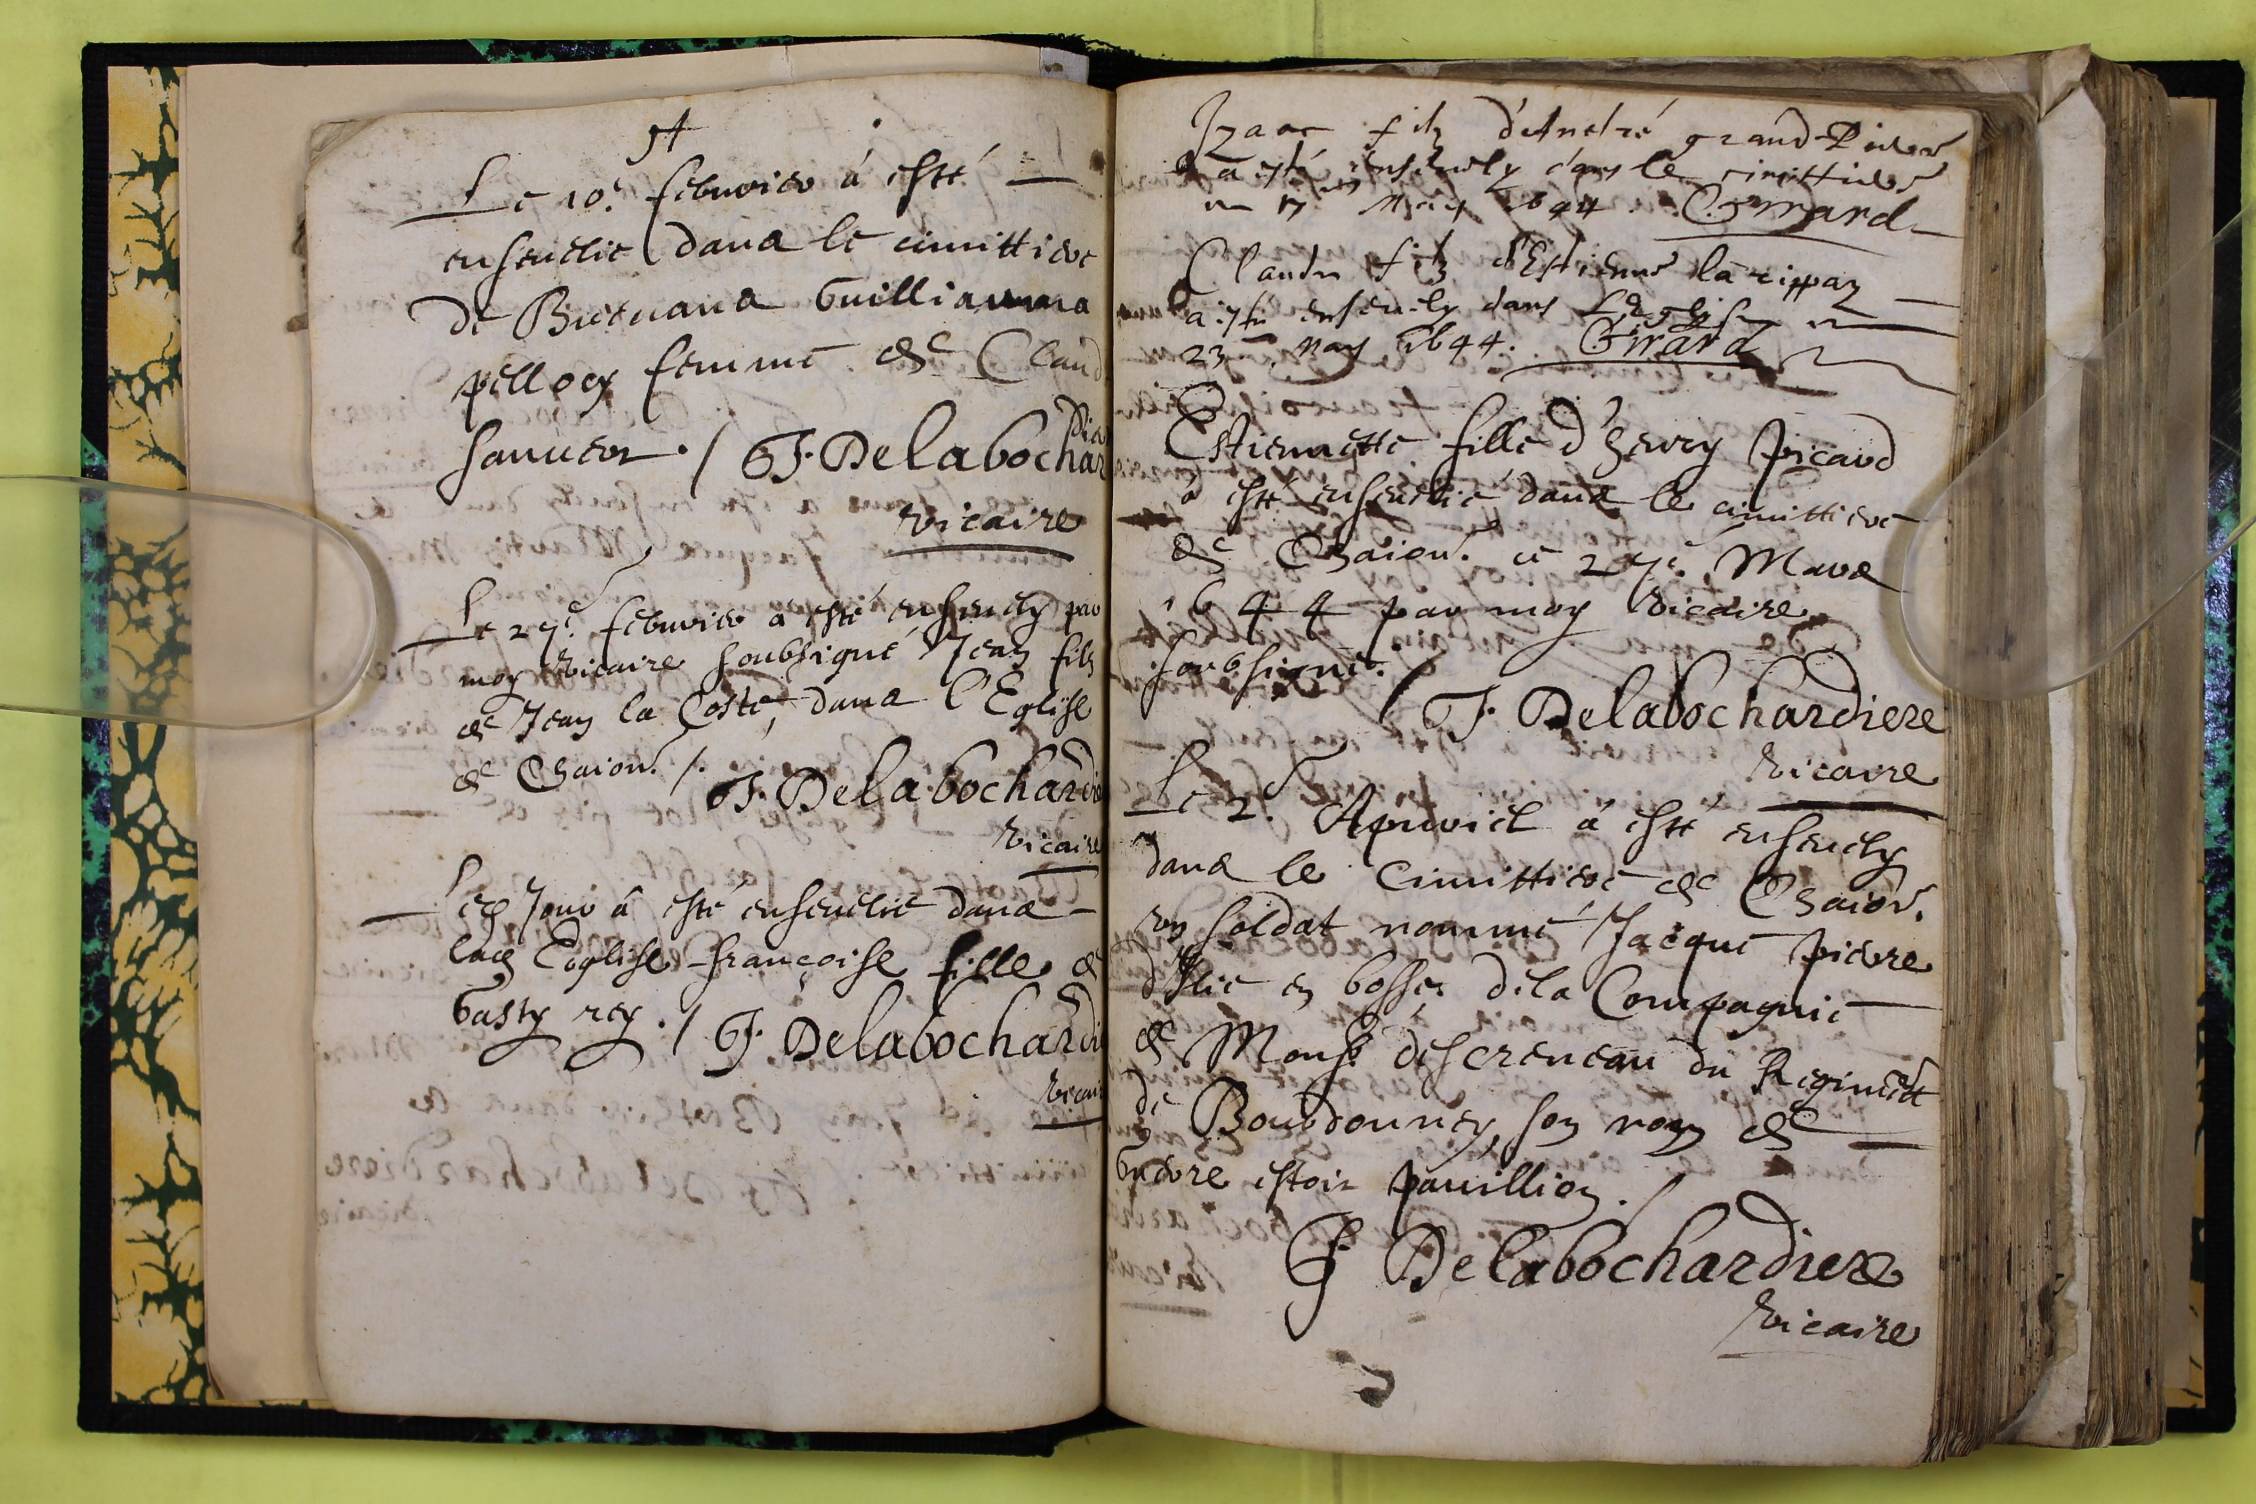 Le 10e. febuvier à esté
ensevelie dans le cimittiere
de Guilliauma
pelloex femme de Claud
Sanueor ./ F. Delabochar
dier
vicaire
Le 27e. febuvier a esté ensevely par
moy vicaire soubsigné Jean filz
de Jean la Coste, dans l'Eglise
de Chaion. /. F. Delabochardie
vicaire
Led Jour à esté ensevelie dans
lad Eglise françoise fille de
Gasty rey ./ F. Delabochardi
vicai
Izaac filz d'André grand-Pierre
a esté ensevely dans le cimittiere
17 May 1644. Girard
Claude filz d'Estienne la rippaz
a esté ensevely dans L'eglise
23 may 1644. Girard
Estiennette fille d'henry picard
à esté ensevelie dans le cimittiere
de Chaion. ce 27e. Mars
1644 par moy vicaire
soubsigné. / F. Delabochardiere
vicaire
Le 2e. Apuvril à esté ensevely
dans le Cimittiere de Chaion.
un soldat nommé Jacque pierre
en bosse, dela Compagnie
de Monsr descreneau du Regimēt
de Bourdonney, son nom de
Guerre estoit pavillion ./
F Delabochardiere
vicaire